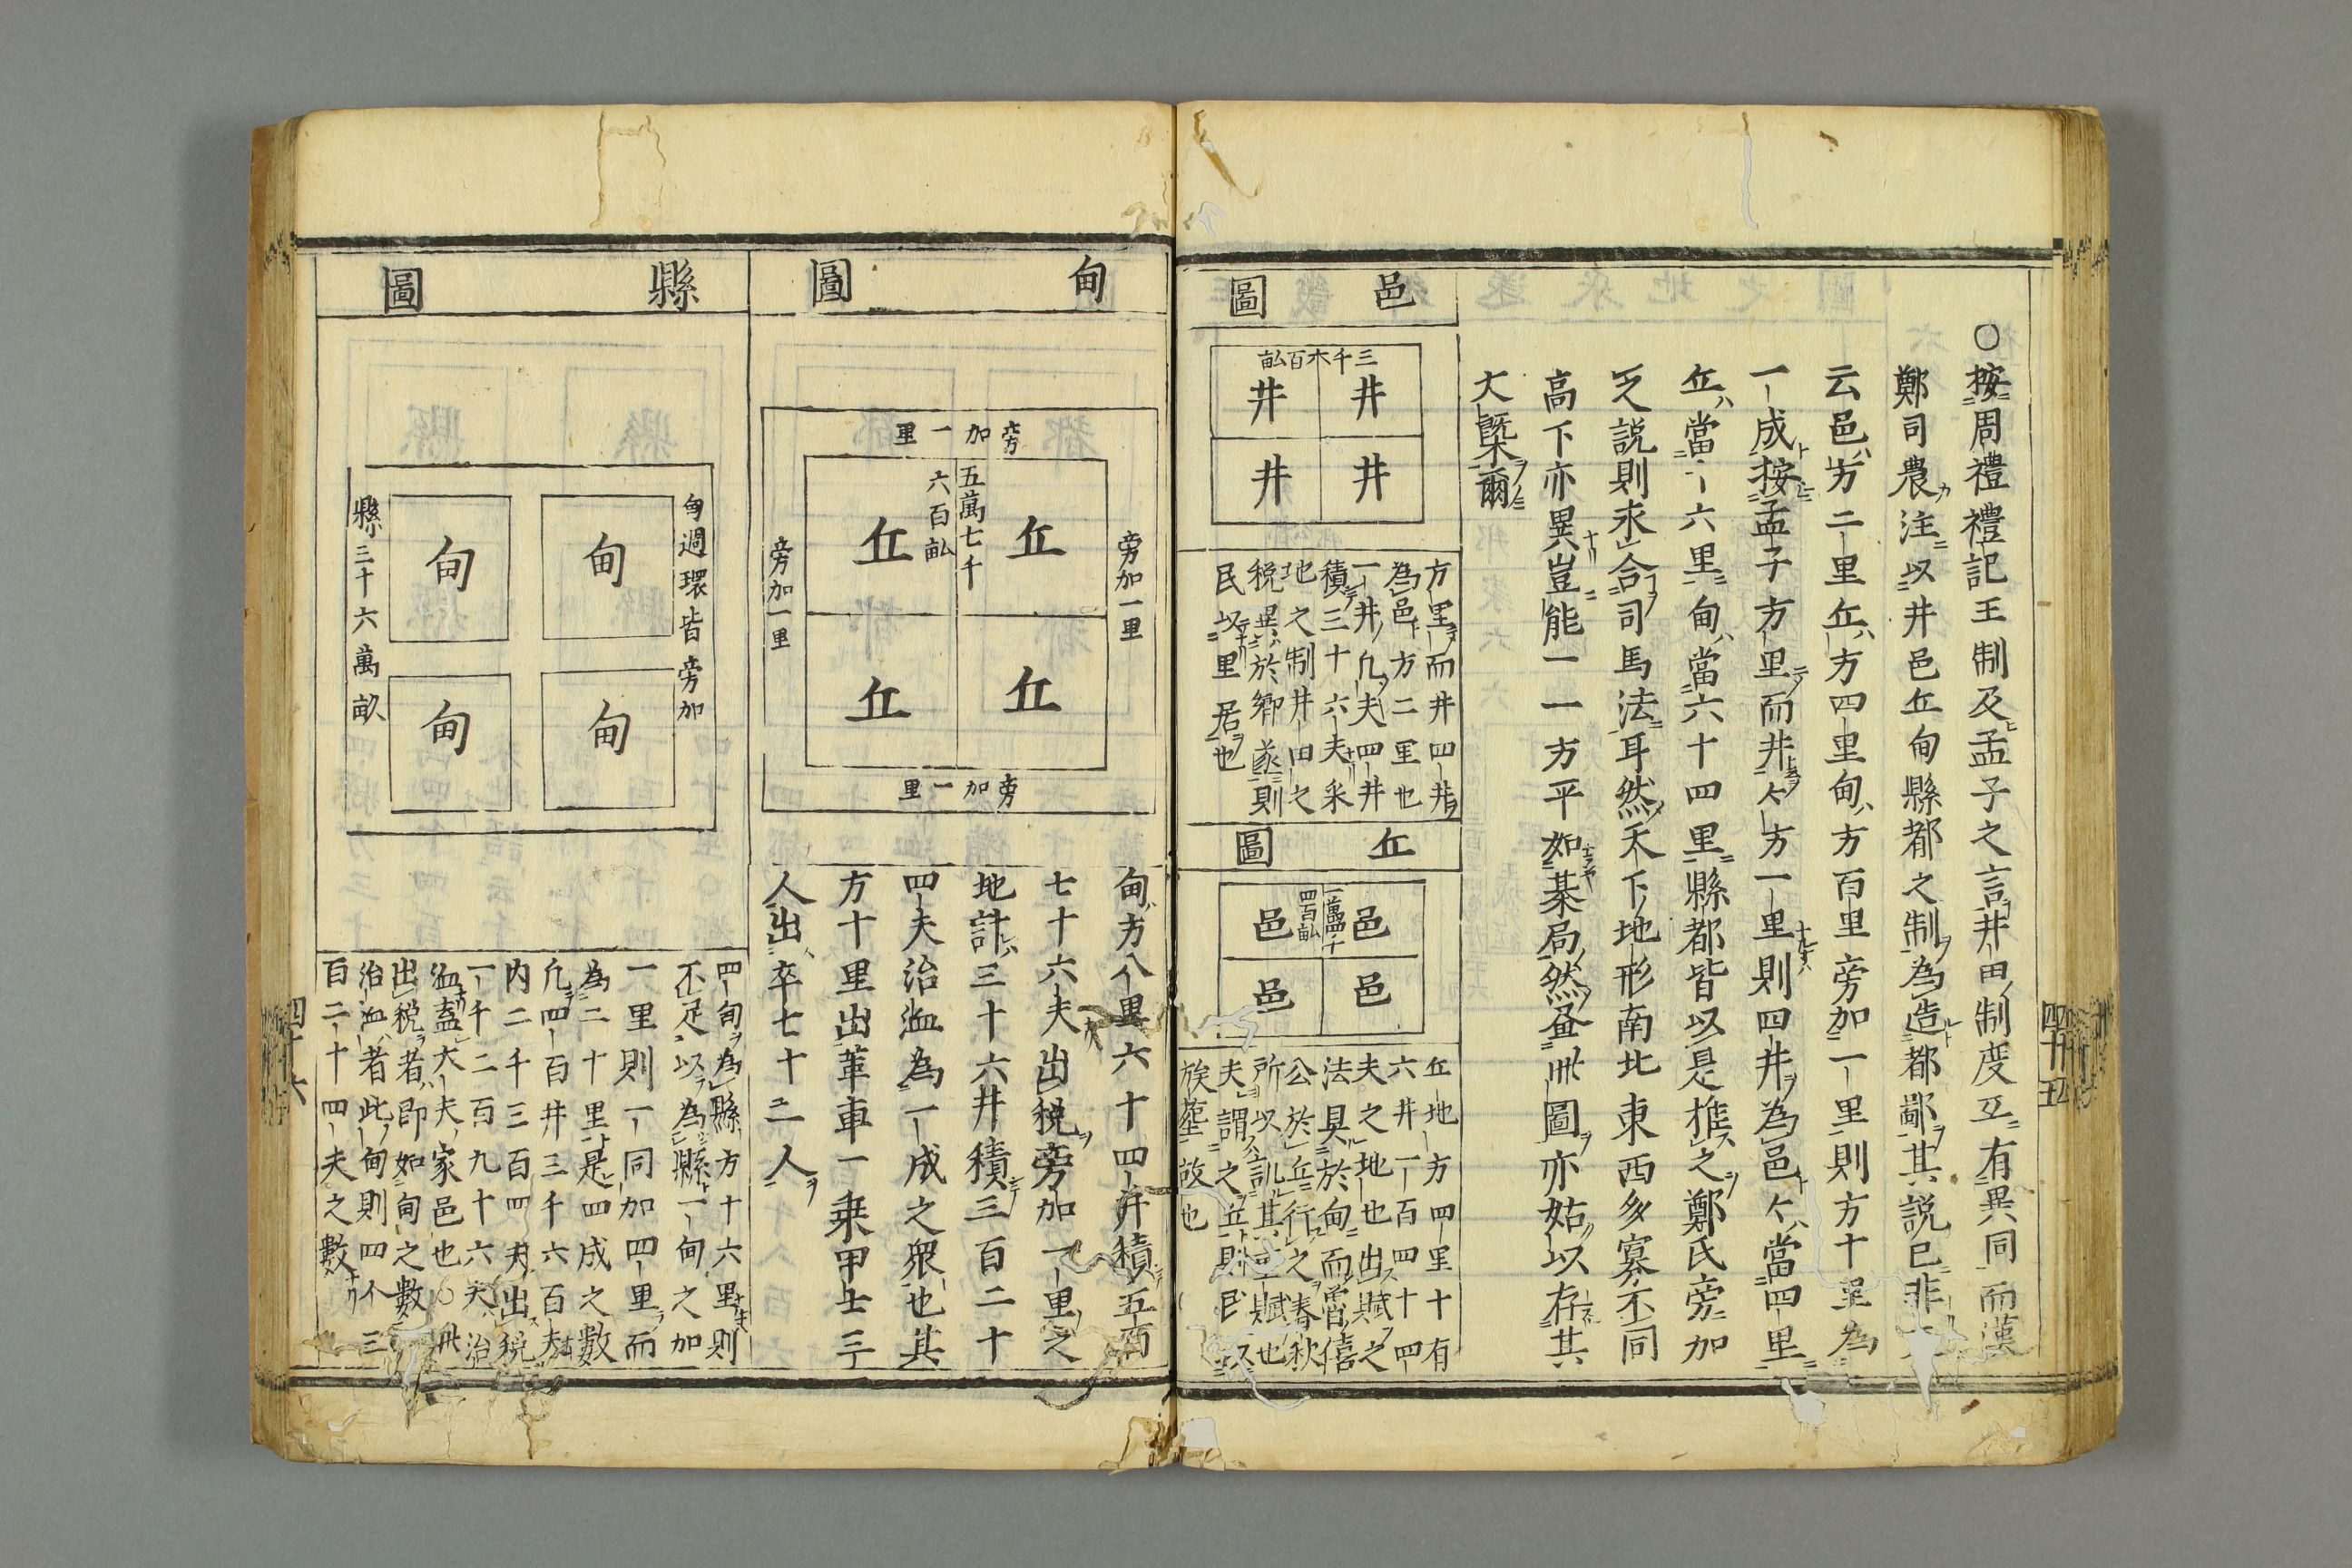 ○按周禮禮記王制及孟子之言井田制度互有異同而漢
鄭司農注以井邑丘甸縣都之制為造都鄙其說已非
云邑方二里丘方四里甸方百里旁加一里則方十里為
一成按孟子方里而井今方一里則四井為邑今當四里
丘當一六里甸當六十四里縣都皆以是推之鄭氏旁加
之說則求合司馬法耳然天下地形南北東西多寡不同
高下亦異豈能一一方平如棊局然並此圖亦姑以存其
大槩爾
邑圖
三千六百畝
井
井
井
井
方里而井四井
為邑方二里也
一井九夫四井
積三十六夫采
地之制井田之
稅異於鄉遂則
民以里居也
丘圖
一萬四千
四百畝
邑
邑
邑
邑
丘地方四里十有
六井一百四十四
夫之地也出賦之
法具於甸而魯僖
公於丘行之春秋
所以譏其重賦也
夫謂之丘則民以
族葬故也
四十五
甸圖
旁加一里
旁加一里
旁加一里
旁加一里
五萬七千
六百畝
丘
丘
丘
丘
甸方八里六十四井積五百
七十六夫出稅旁加一里之
地計三十六井積三百二十
四夫治洫為一成之眾也其
方十里出革車一乘甲士三
人出卒七十二人
縣圖
甸週環皆旁加
甸
甸
甸
甸
縣三十六萬畝
四甸為縣方十六里則
不足以為縣一甸之加
一里則一同加四里而
為二十里是四成之數
凡四百井三千六百夫
內二千三百四夫出稅
一千二百九十六夫治
洫蓋大夫家邑也
出稅者即如甸之數
治洫者此甸則四个三
百二十四夫之數
四十六